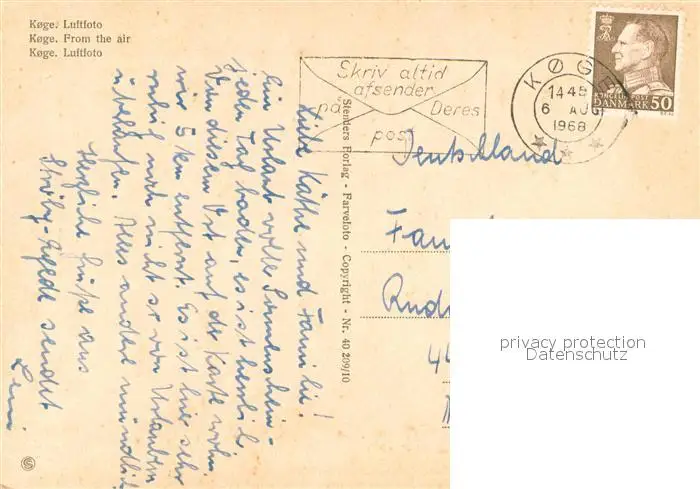 Køge. Luftfoto
Køge. From the air
Køge. Luftfoto
Skriv altid
afsender
på Deres
post
KØGE
14 45
6 AUG
1968
KONGELIG POST
DANMARK 50
Stenders Forlag - Farvefoto - Copyright - Nr. 40 209/10
Liebe Käthe und Familie!
Ein Urlaub voller Sonnenschein -
jeden Tag baden, es ist herrlich
Von diesem Ort auf der Karte wohn.
wir 5 km entfernt. Es ist hier sehr
ruhig noch nicht so von Urlaubern
überlaufen. Alles andere mündlich
Herzliche Grüße aus
Strøby-Egede sendet
Deutschland
Fam
Rud
44
privacy protection
Datenschutz